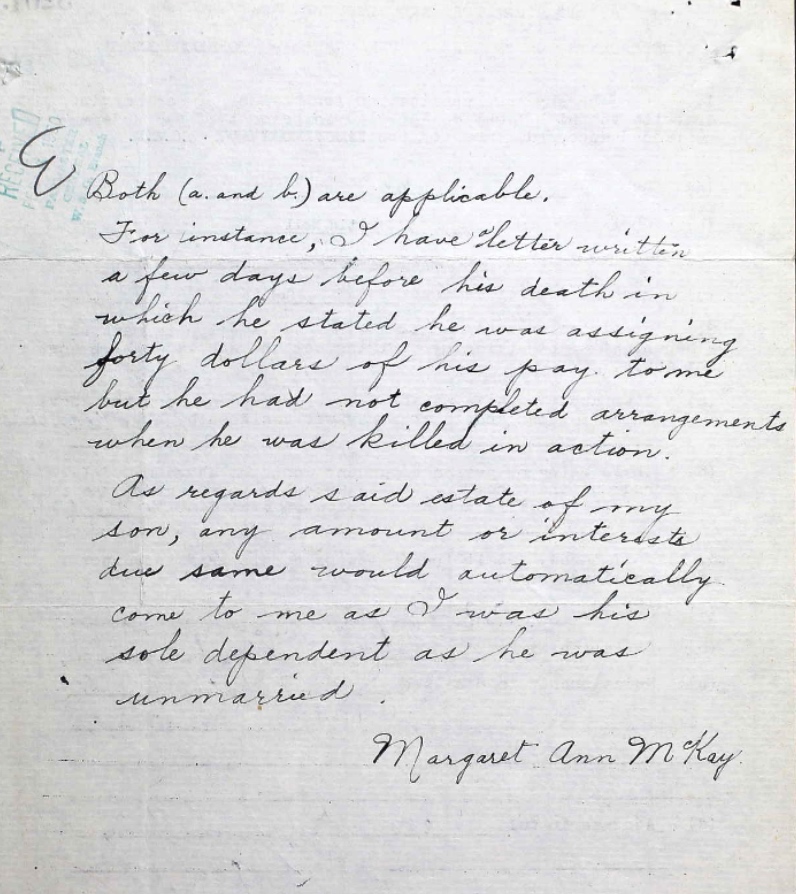 Both (a. and b.) are applicable.
For instance, I have a letter written
a few days before his death in
which he stated he was assigning
forty dollars of his pay. to me
but he had not completed arrangements
when he was killed in action.
As regards said estate of my
son, any amount or interests
due same would automatically
come to me as I was his
sole dependent as he was
unmarried.
Margaret Ann McKay
RECEIVED